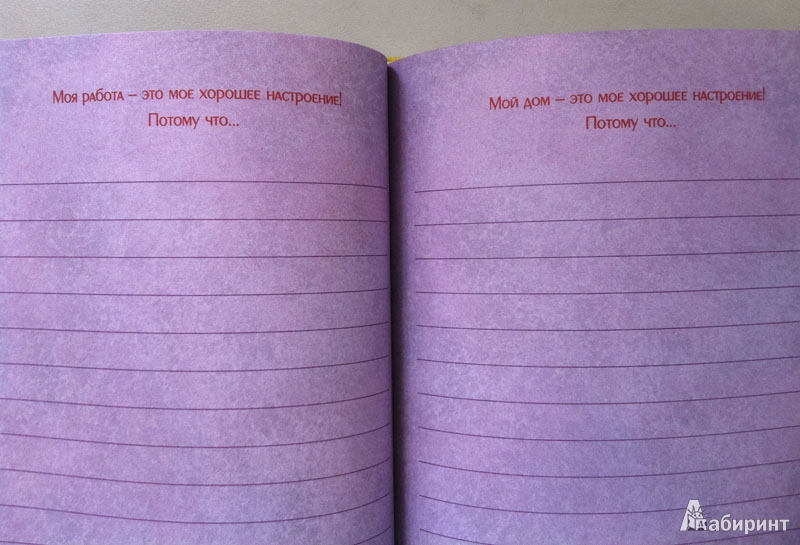 Моя работа – это мое хорошее настроение!
Потому что...
Мой дом – это мое хорошее настроение!
Потому что...
Лабиринт